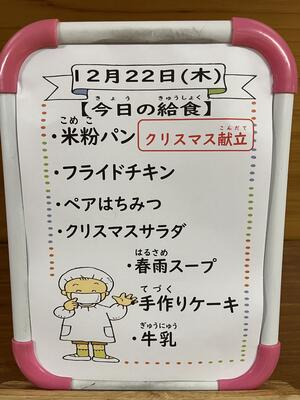 12月22日(木)
きょう きゅうしょく
【今日の給食】
こめ こ
・米粉パン
こんだて
クリスマス献立
・フライドチキン
・ペアはちみつ
・クリスマスサラダ
はるさめ
・春雨スープ
てづく
・手作りケーキ
ぎゅうにゅう
・牛乳